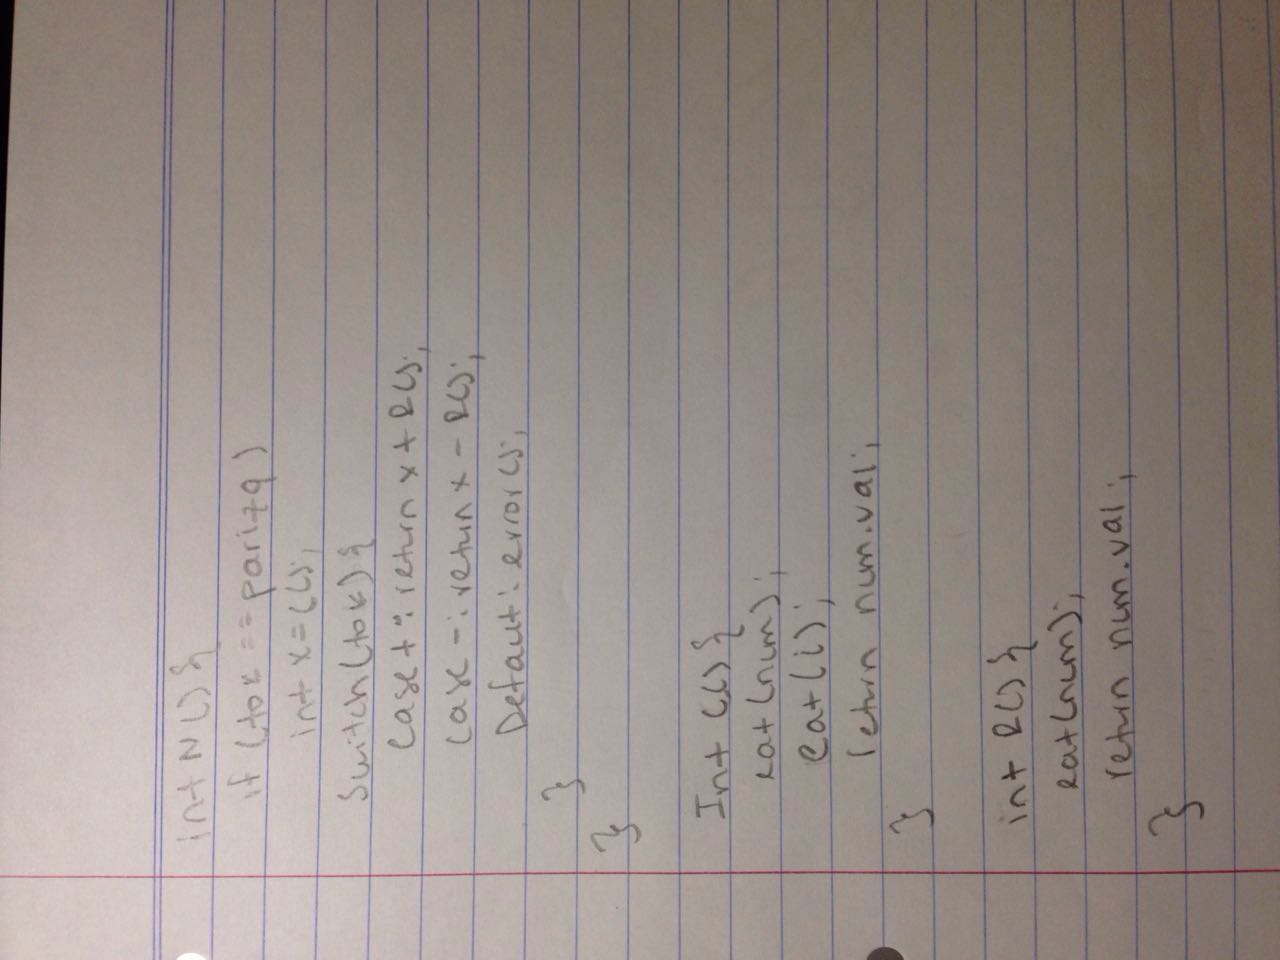 int N() {
if (tok == parizq)
int x = C();
Switch(tok) {
Case + : return x + R();
Case - : return x - R();
Defaut : error();
}
}
Int C() {
eat(num);
eat(i);
return num.val;
}
int R() {
eat(num);
return num.val;
}